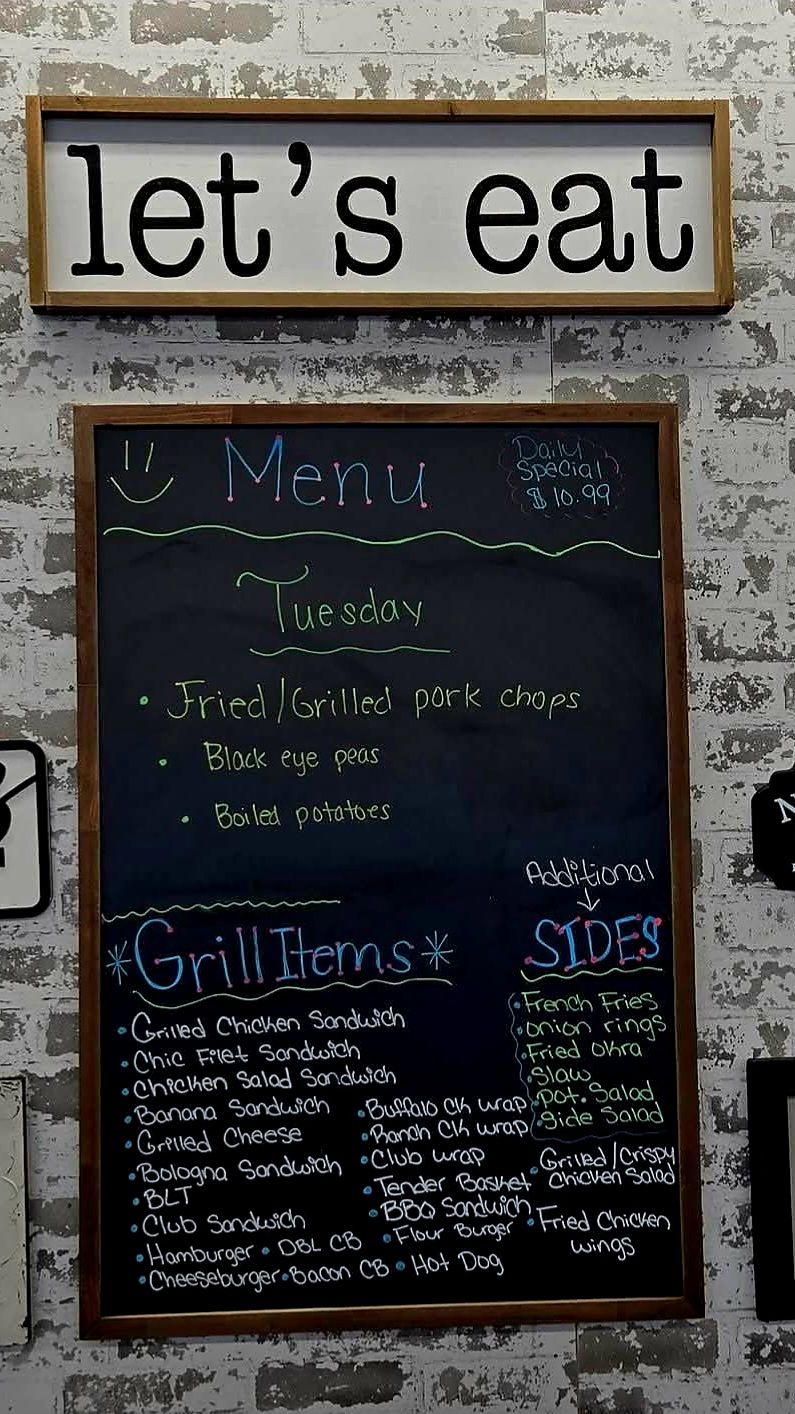 let's eat
Menu
Daily
Special
$10.99
Tuesday
• Fried/Grilled pork chops
• Black eye peas
• Boiled potatoes
Additional
SIDES
• French Fries
• onion rings
• Fried Okra
• Slaw
• pot. Salad
• Side Salad
*Grill Items*
• Grilled Chicken Sandwich
• Chic Filet Sandwich
• Chicken Salad Sandwich
• Banana Sandwich
• Grilled Cheese
• Bologna Sandwich
• BLT
• Club Sandwich
• Hamburger • DBL CB
• Cheeseburger • Bacon CB • Hot Dog
• Buffalo CK wrap
• Ranch CK wrap
• Club wrap
• Tender Basket
• BBQ Sandwich
• Flour Burger
• Grilled/Crispy
Chicken Salad
• Fried Chicken
wings